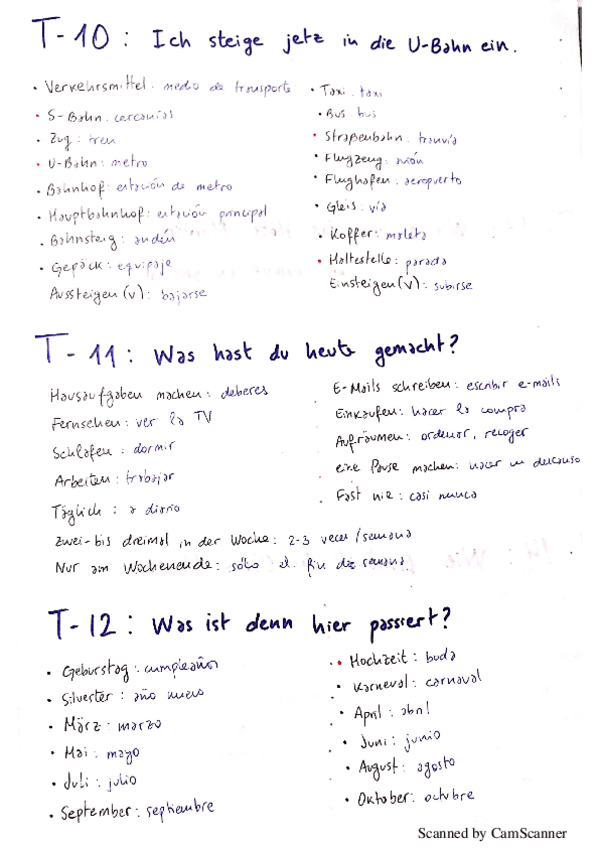 T-10: Ich steige jetz in die U-Bahn ein.
• Verkehrsmittel: medio de transporte
• S-Bahn: cercanías
• Zug: tren
• U-Bahn: metro
• Bahnhof: estación de metro
• Hauptbahnhof: estación principal
• Bahnsteig: andén
• Gepäck: equipaje
Aussteigen (v): bajarse
• Taxi: taxi
• Bus: bus
• Straßenbahn: tranvía
• Flugzeug: avión
• Flughafen: aeropuerto
• Gleis: vía
• Koffer: maleta
• Haltestelle: parada
Einsteigen (v): subirse
T-11: Was hast du heute gemacht?
Hausaufgaben machen: deberes
Fernsehen: ver la TV
Schlafen: dormir
Arbeiten: trabajar
Täglich: a diario
Zwei-bis dreimal in der Woche: 2-3 veces/semana
Nur am Wochenende: sólo el fin de semana
E-Mails schreiben: escribir e-mails
Einkaufen: hacer la compra
Aufräumen: ordenar, recoger
eine Pause machen: hacer un descanso
Fast nie: casi nunca
T-12: Was ist denn hier passiert?
• Geburstag: cumpleaños
• Silvester: año nuevo
• März: marzo
• Mai: mayo
• Juli: julio
• September: septiembre
• Hochzeit: boda
• Karneval: carnaval
• April: abril
• Juni: junio
• August: agosto
• Oktober: octubre
Scanned by CamScanner